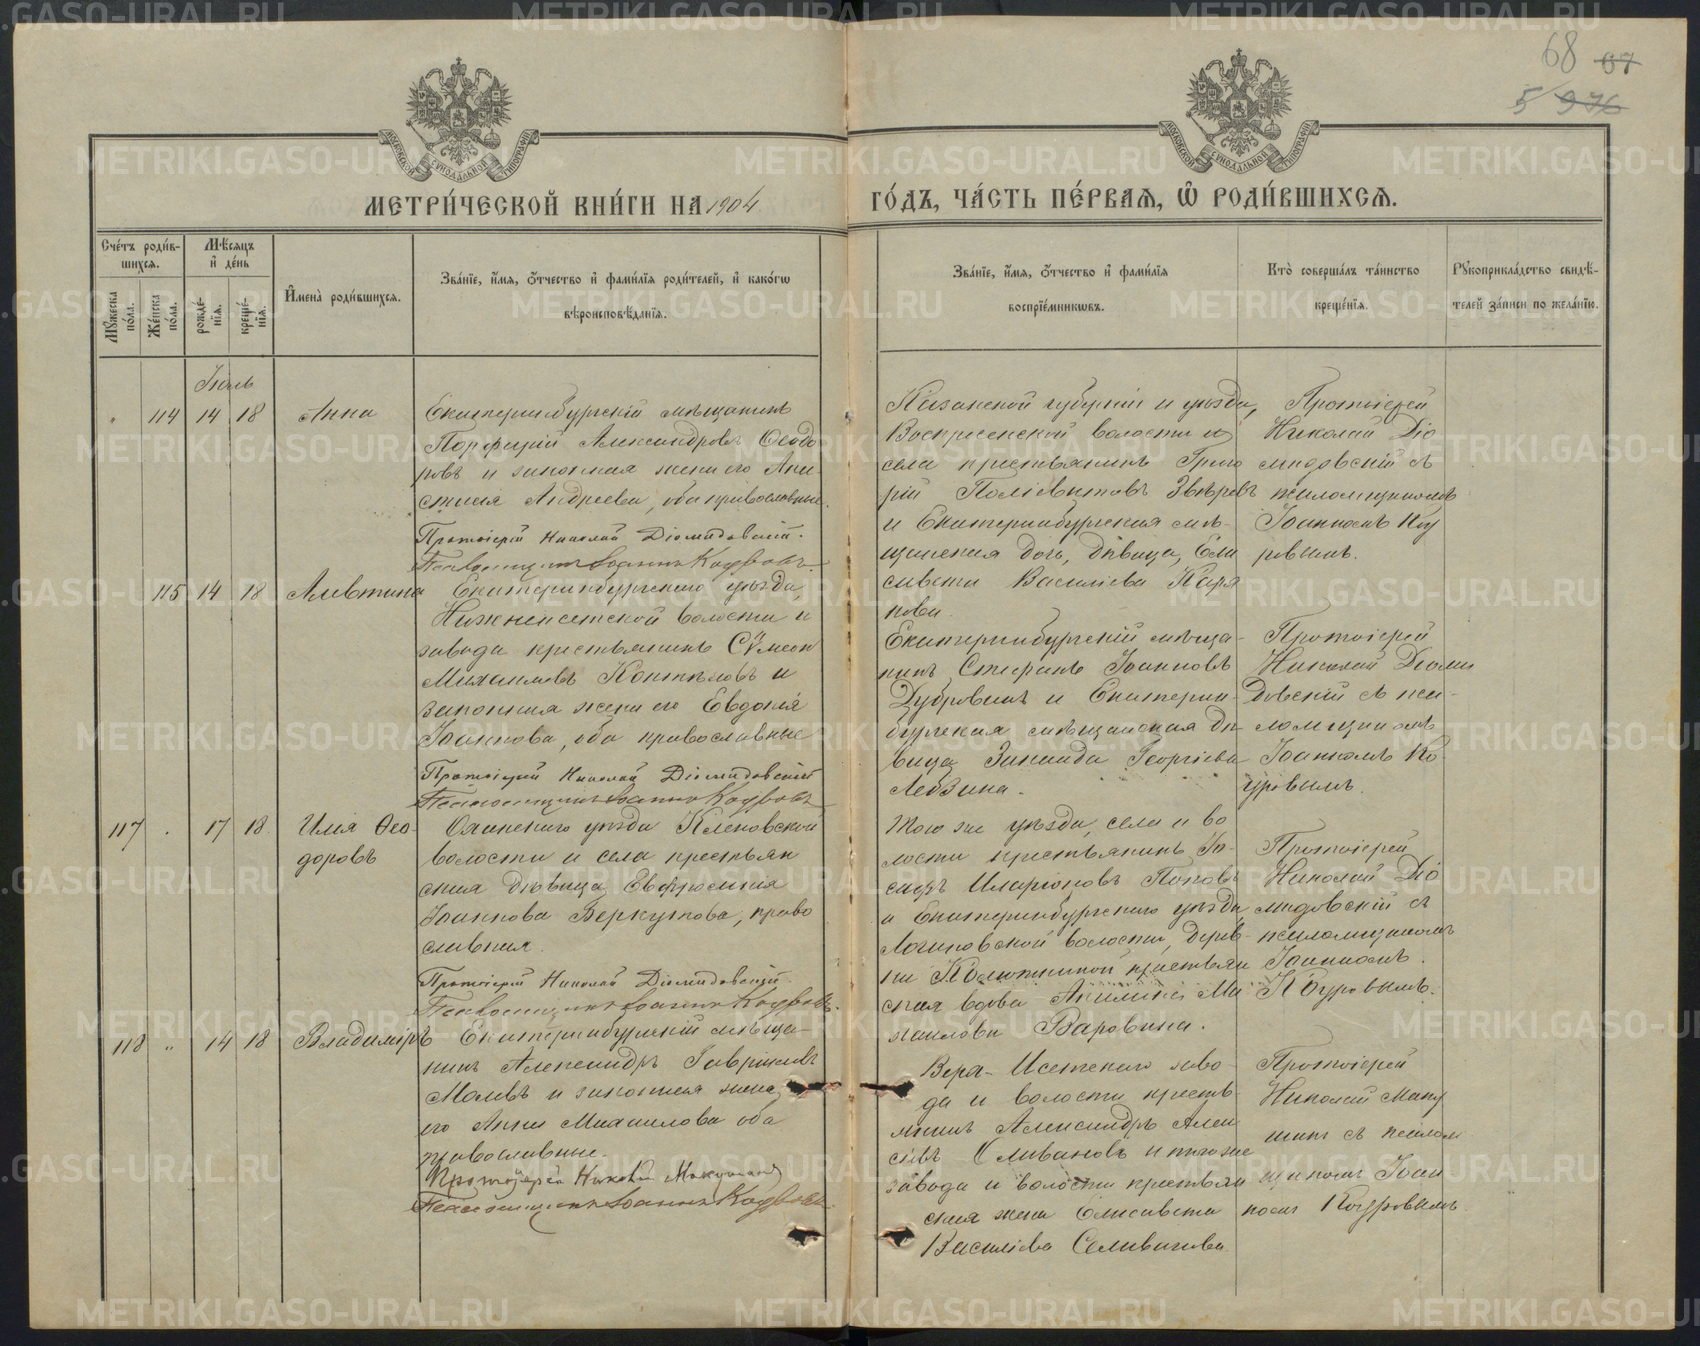 68 67
5 976
МЕТРИ́ЧЕСКОЙ КНИ́ГИ НА 1904 ГО́ДЪ, ЧА́СТЬ ПЕ́РВАЯ, Ѽ РОДИ́ВШИХСЯ.
Сче́тъ роди́в-
шихся.
Мѣ́сяцъ
и҆ де́нь
Мꙋ́жеска
по́ла.
Же́нска
по́ла.
рожде́-
нїя.
креще́-
нїя.
И҆мена̀ роди́вшихся.
Зва́нїе, и҆́мя, ѻ҆́тчество и҆ фами́лїя роди́телей, и҆ како́гѡ
вѣроисповѣ́данїя.
Зва́нїе, и҆́мя, ѻ҆́тчество и҆ фами́лїя
воспрїе́мникѡвъ.
Кто̀ соверша́лъ та́инство
креще́нїя.
Рꙋкоприкла́дство свидѣ́-
телей за́писи по жела́нїю.
Іюль
" 114 14 18 Анна
Екатеринбургскій мѣщанинъ
Порфирій Александровъ Ѳеодо
ровъ и законная жена его Ана
стасія Андреева, оба православные.
Протоіерей Николай Діомидовскій.
Псаломщикъ Іоаннъ Коуровъ
Казанской губерніи и уѣзда,
Воскресенской волости и
села крестьянинъ Григо
рій Поліевктовъ Звѣревъ
и Екатеринбургская мѣ-
щанская дочь, дѣвица, Ели
савета Василіева Каря
кова.
Протоіерей
Николай Діо
мидовскій съ
псаломщикомъ
Іоанномъ Коу
ровымъ.
115 14 18 Алевтина
Екатеринбургскаго уѣзда,
Нижнеисетской волости и
завода крестьянинъ Сѵмеонъ
Михаиловъ Коптѣловъ и
законная жена его Евдокія
Іоаннова, оба православные
Протоіерей Николай Діомидовскій
Псаломщикъ Іоаннъ Коуровъ
Екатеринбургскій мѣща-
нинъ Стефанъ Іоанновъ
Дубровинъ и Екатерин-
бургская мѣщанская дѣ
вица Зинаида Георгіева
Лебзина.
Протоіерей
Николай Діоми
довскій съ пса-
ломщикомъ
Іоанномъ Ко
уровымъ.
117 . 17 18. Илія Ѳео-
доровъ
Оханскаго уѣзда Кленовской
волости и села крестьян
ская дѣвица Евфросинія
Іоаннова Беркутова, право
славная.
Протоіерей Николай Діомидовскій.
Псаломщикъ Іоаннъ Коуровъ.
Того же уѣзда, села и во
лости крестьянинъ Іо-
сифъ Иларіоновъ Поповъ
и Екатеринбургскаго уѣзда,
Логиновской волости, дерев-
ни Колюткиной крестьян
ская вдова Акилина Ми
хаилова Варовина.
Протоіерей
Николай Діо
мидовскій съ
псаломщикомъ
Іоанномъ
Коуровымъ.
118 " 14 18 Владиміръ
Екатеринбургскій мѣща-
нинъ Александръ Гавріиловъ
и законная жена
его Анна Михаилова оба
православные.
Протоіерей Николай Макушинъ
Псаломщикъ Іоаннъ Коуровъ.
Верх-Исетскаго заво
да и волости кресть-
янинъ Александръ Алек
сѣевъ Селивановъ и того же
завода и волости крестьян
ская жена Елисавета
Василіева Селиванова
Протоіерей
Николай Маку
шинъ съ псалом
щикомъ Іоан
номъ Коуровымъ
METRIKI.GASO-URAL.RU